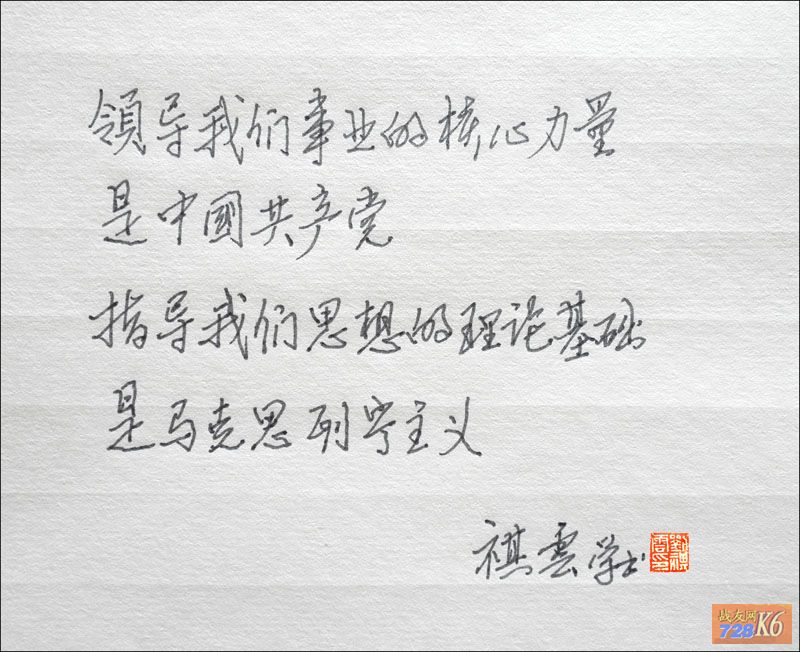 領导我们事业的核心力量
是中國共产党
指导我们思想的理论基础
是马克思列宁主义
祺雲学书
战友网
728 K6